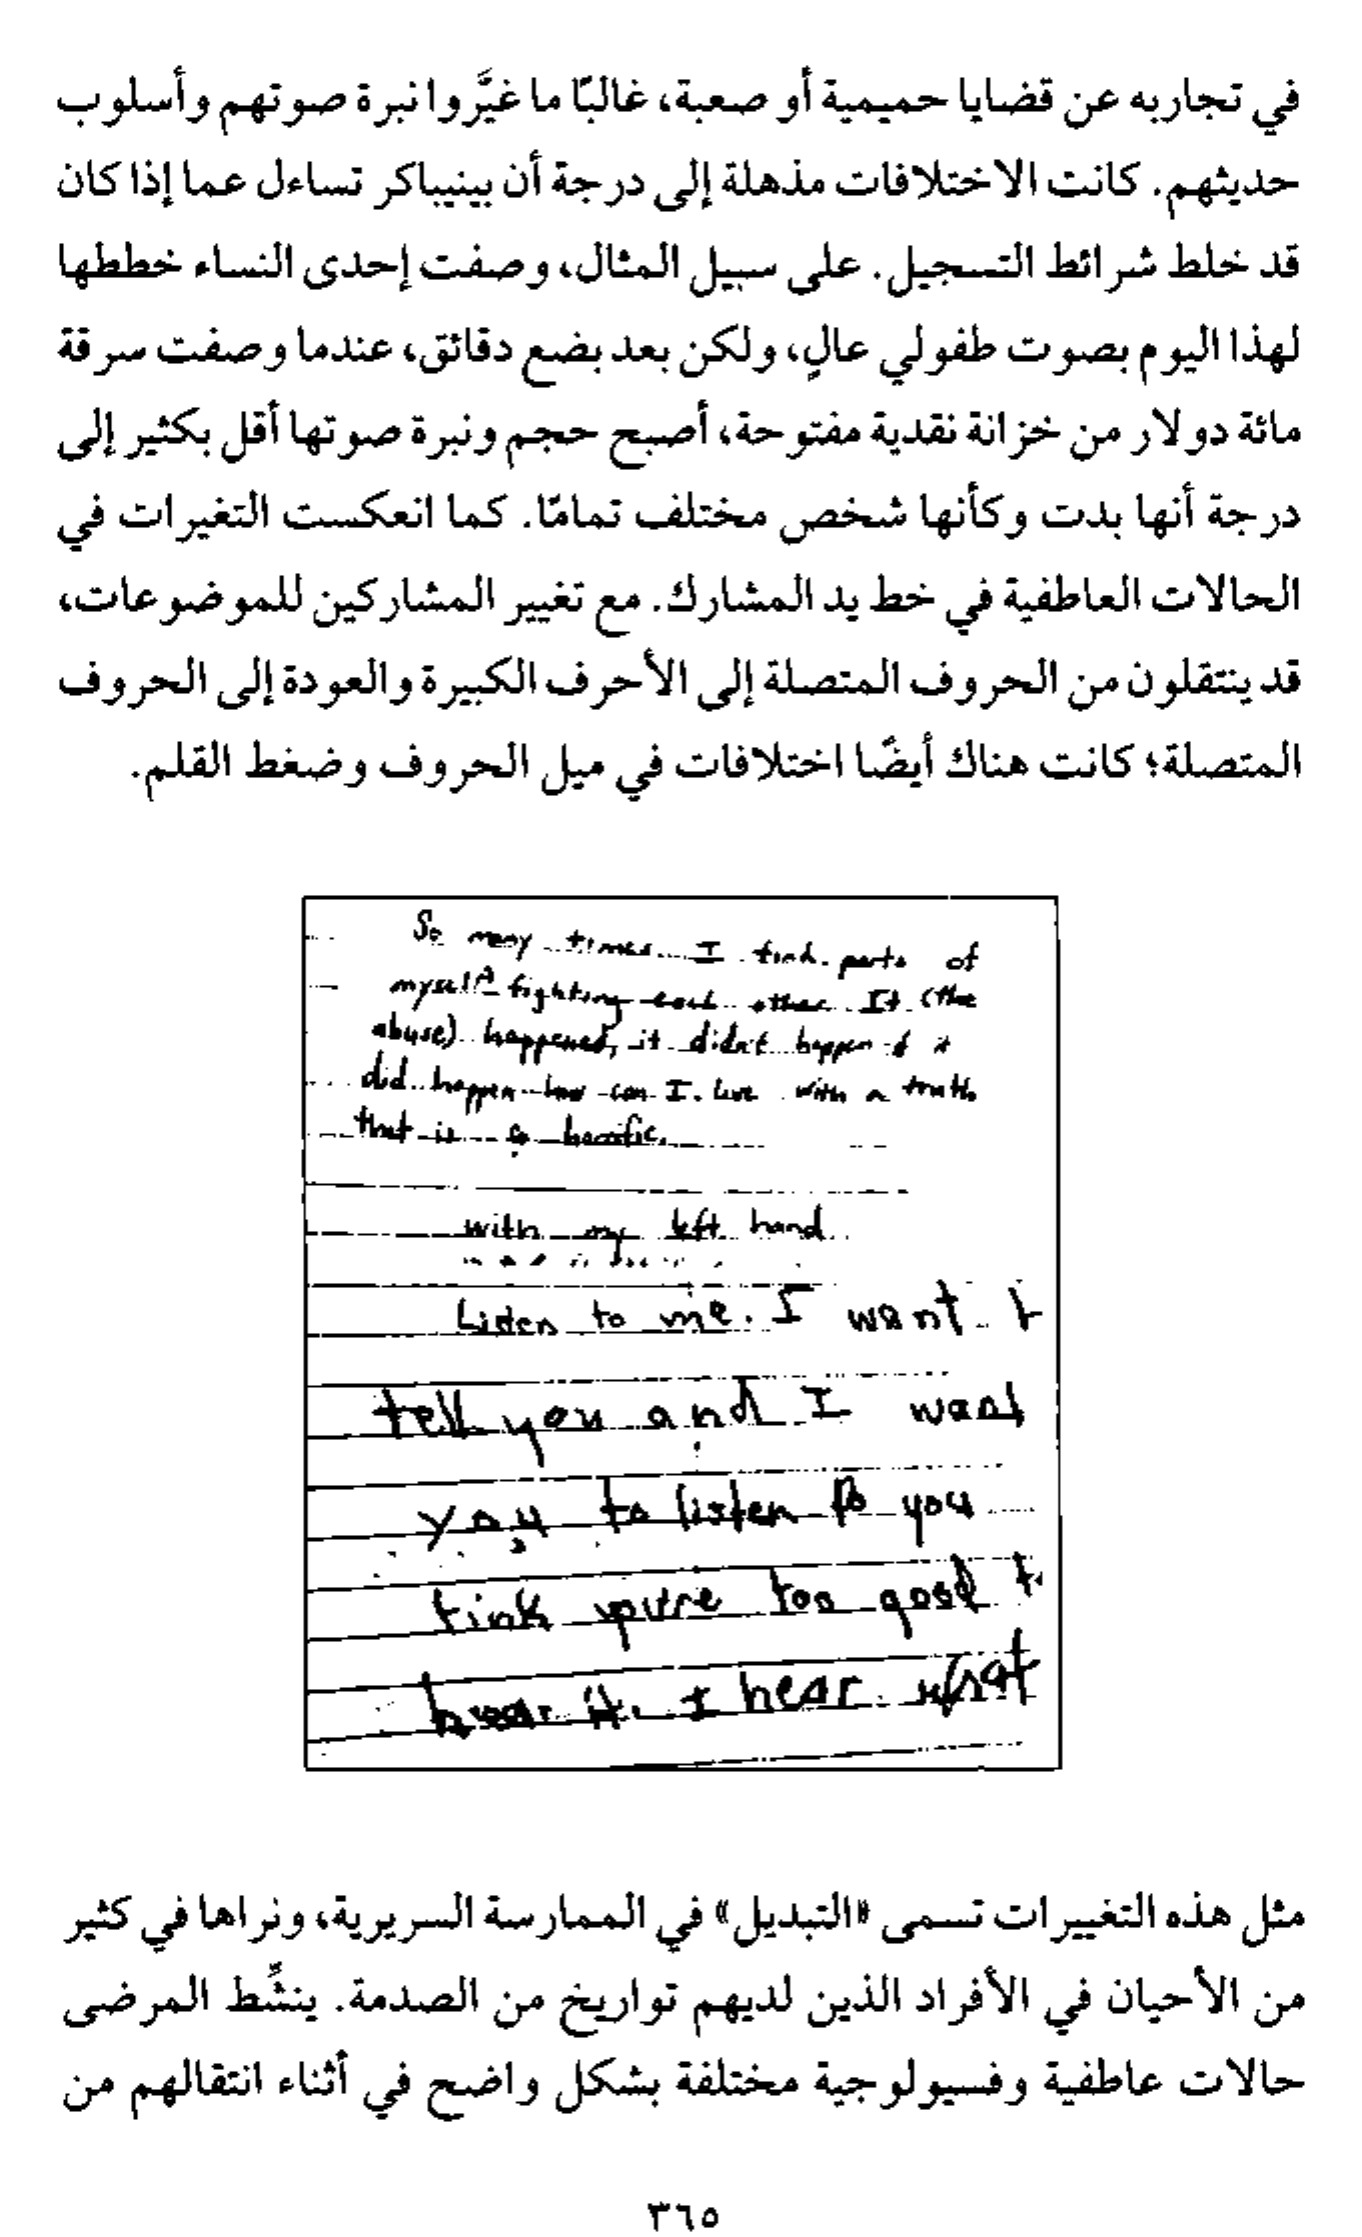 في تجاربه عن قضايا حميمية أو صعبة، غالبًا ما غيَّروا نبرة صوتهم وأسلوب
حديثهم. كانت الاختلافات مذهلة إلى درجة أن بينيباكر تساءل عما إذا كان
قد خلط شرائط التسجيل. على سبيل المثال، وصفت إحدى النساء خططها
لهذا اليوم بصوت طفولي عالٍ، ولكن بعد بضع دقائق، عندما وصفت سرقة
مائة دولار من خزانة نقدية مفتوحة، أصبح حجم ونبرة صوتها أقل بكثير إلى
درجة أنها بدت وكأنها شخص مختلف تمامًا. كما انعكست التغيرات في
الحالات العاطفية في خط يد المشارك. مع تغيير المشاركين للموضوعات،
قد ينتقلون من الحروف المتصلة إلى الأحرف الكبيرة والعودة إلى الحروف
المتصلة؛ كانت هناك أيضًا اختلافات في ميل الحروف وضغط القلم.
So many times I find parts of
myself fighting each other It (the
abuse) happened, it didn't happen if it
did happen how can I live with a truth
that is so horrific.
with my left hand
Listen to me. I want t
tell you and I want
you to listen to you
tink you're too good t
hear it. I hear what
مثل هذه التغييرات تسمى «التبديل» في الممارسة السريرية، ونراها في كثير
من الأحيان في الأفراد الذين لديهم تواريخ من الصدمة. ينشِّط المرضى
حالات عاطفية وفسيولوجية مختلفة بشكل واضح في أثناء انتقالهم من
٣٦٥